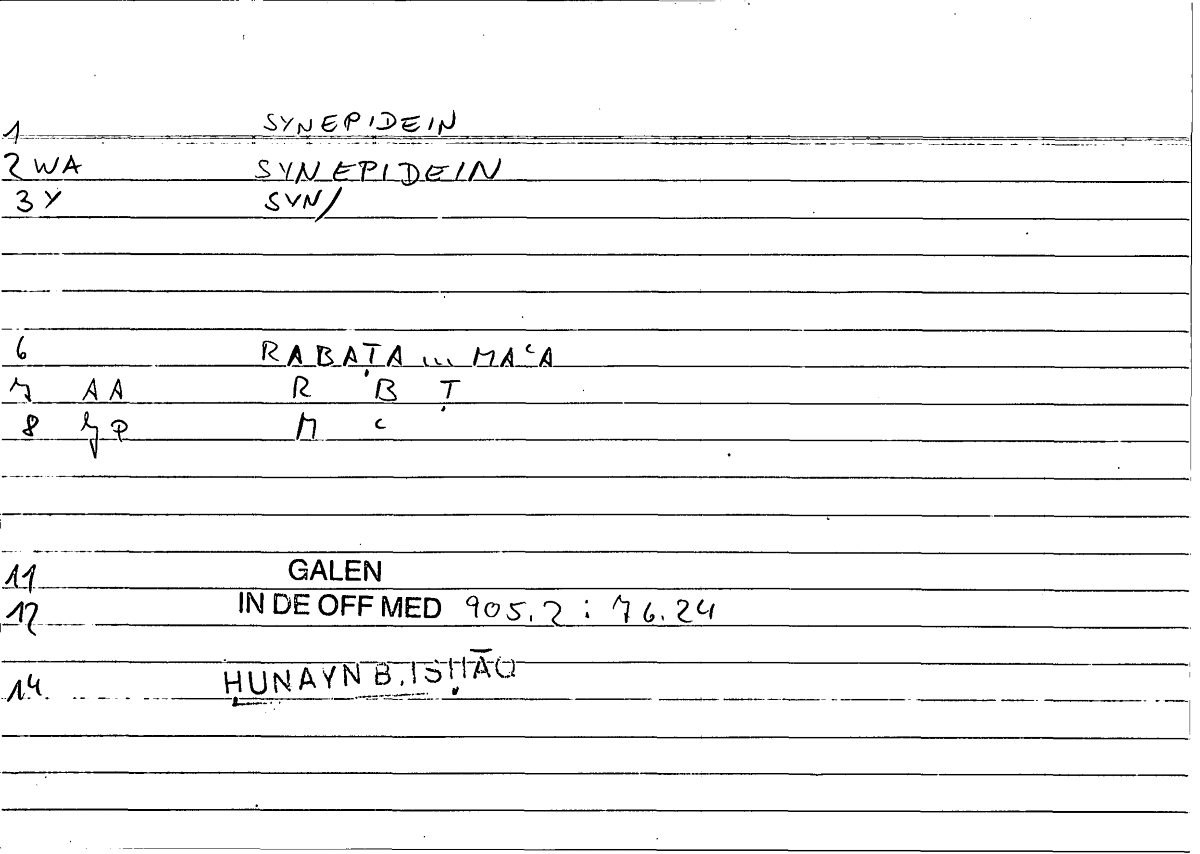 1 SYNEPIDEIN
2 WA SYNEPIDEIN
3 Y SYN/
6 RABAṬA ... MAʿA
7 AA R B Ṭ
8 M ʿ
11 GALEN
12 IN DE OFF MED 905.2 : 76.24
14 ḤUNAYN B. ISḤĀQ